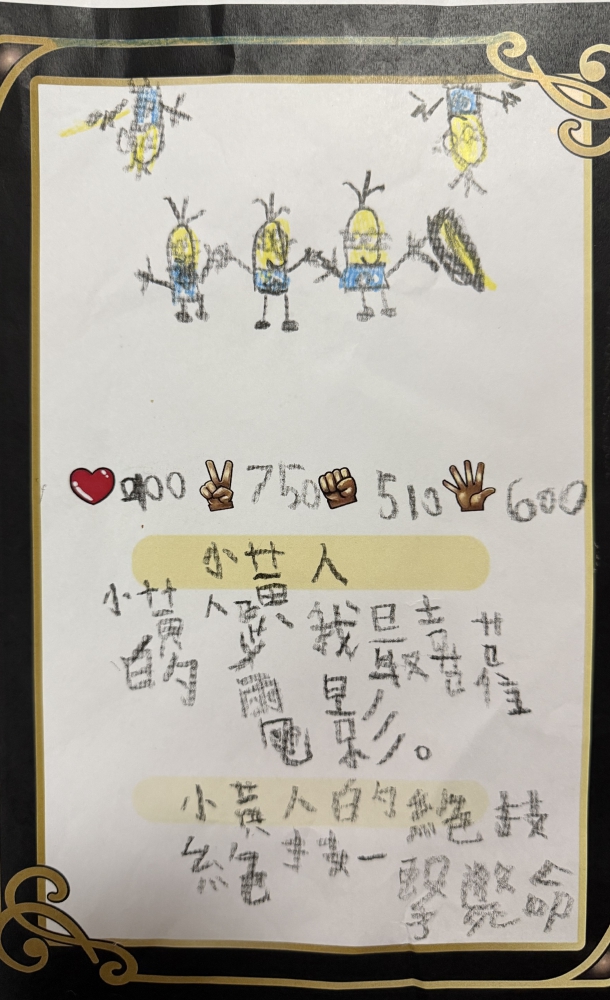 400 750 510 600
小黃人
小黃人 我最喜
的 電影。
小黃人的絕技
絕技一擊斃命